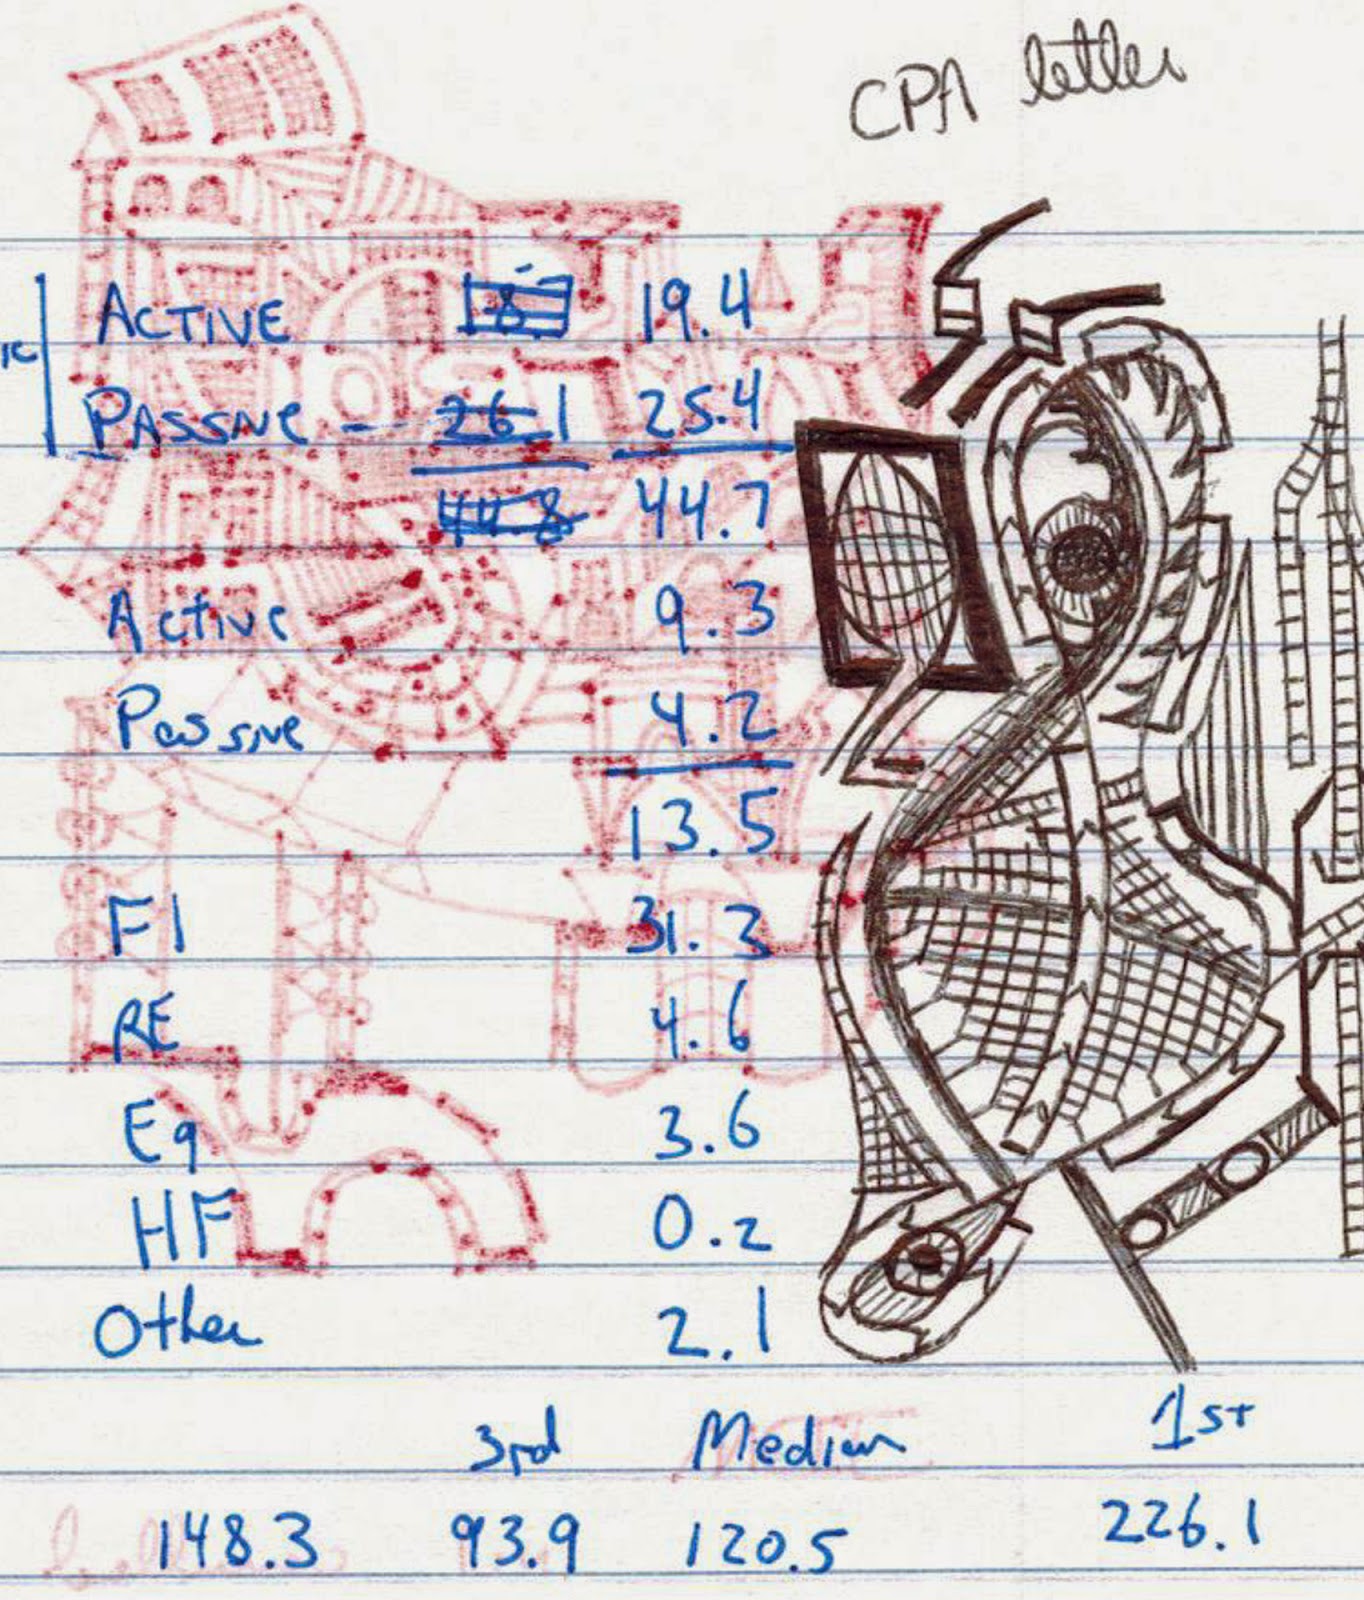 CPA letter
ACTIVE 19.4
PASSIVE - 26.1 25.4
44.8 44.7
Active 9.3
Passive 4.2
13.5
FI 31.3
RE 4.6
Eq 3.6
HF 0.2
Other 2.1
3rd Median 1st
148.3 93.9 120.5 226.1